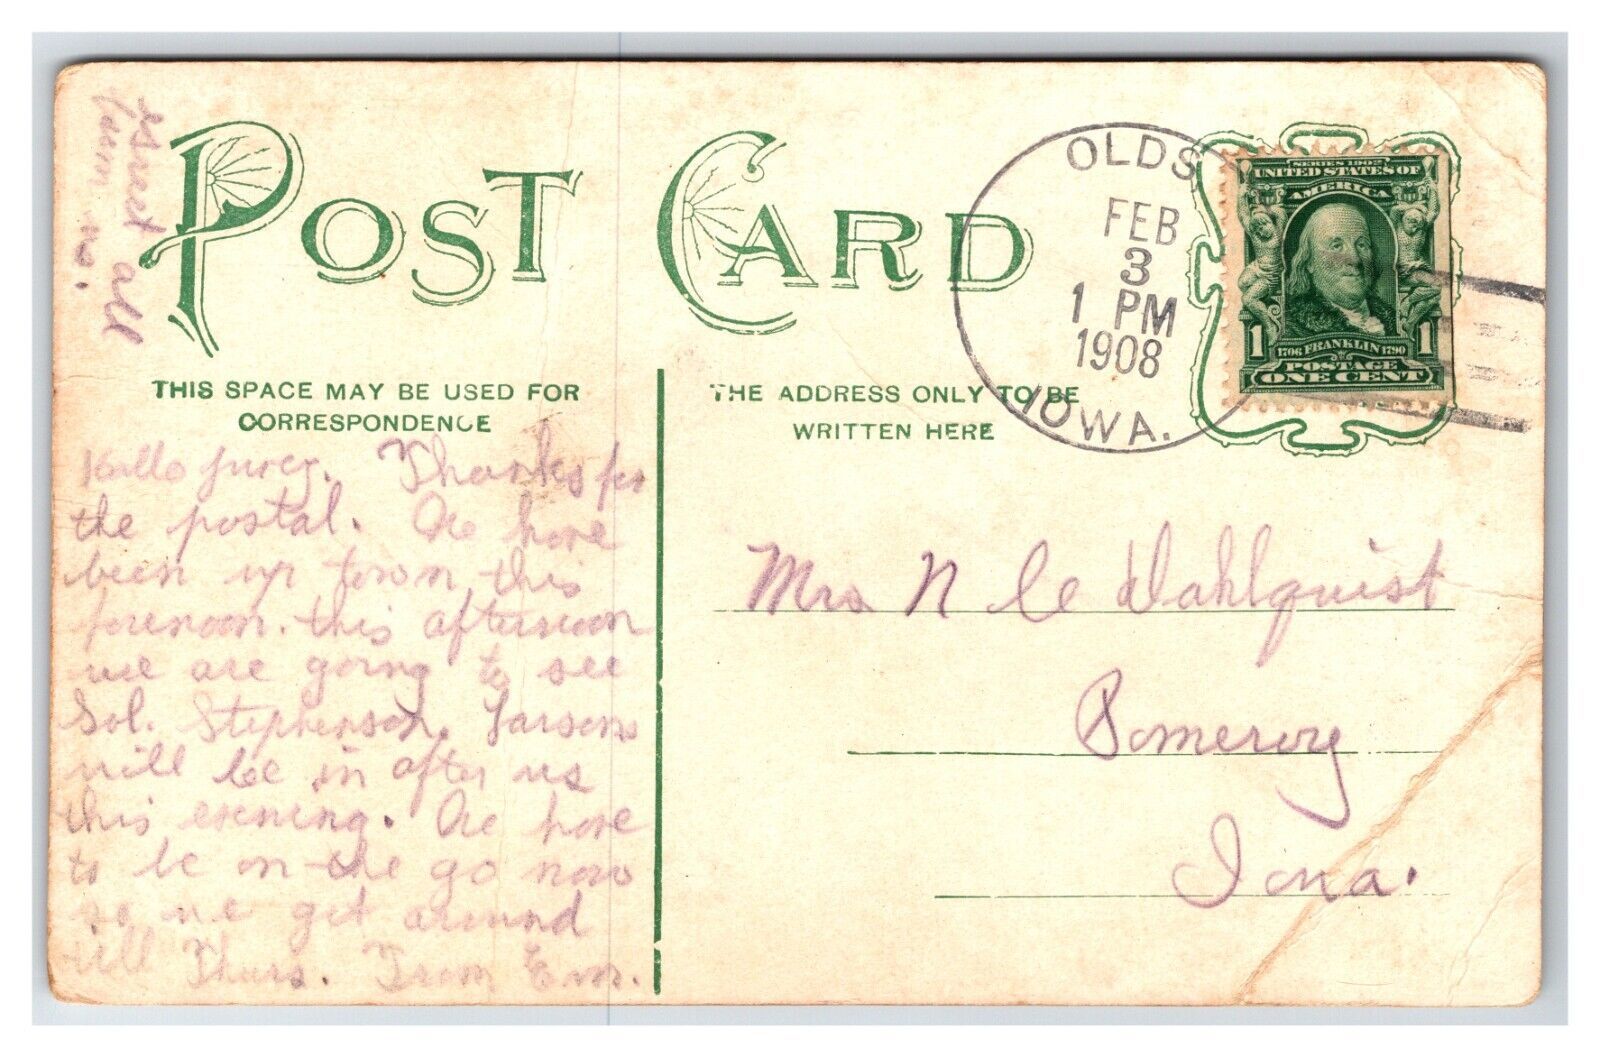 Greet all
from us.
POST CARD
THIS SPACE MAY BE USED FOR
CORRESPONDENCE
THE ADDRESS ONLY TO BE
WRITTEN HERE
OLDS
FEB
3
1 PM
1908
IOWA.
SERIES 1902
UNITED STATES OF
AMERICA
1 1
1706 FRANKLIN 1790
POSTAGE
ONE CENT
Hallo Thanks for
the postal. We have
been up town this
forenoon. this afternoon
we are going to see
Sol. Stephenson. Larsons
will be in after us
this evening. We have
to be on the go now
so we get around
till Thurs. From Em.
Mrs N C Dahlquist
Pomeroy
Iowa.